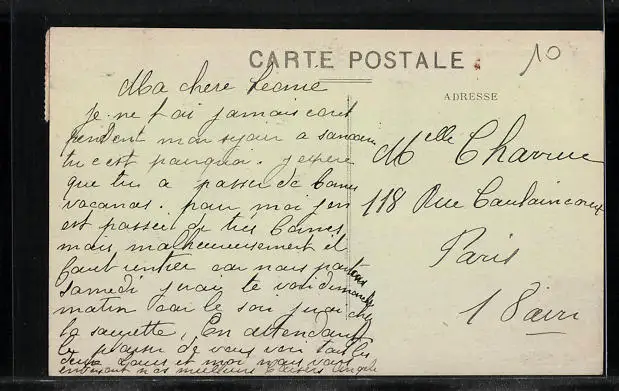 CARTE POSTALE
10
ADRESSE
Ma chere Leone
je ne t'ai jamais ecrit
pendent mon sejour a
tu c'est pourquoi. j'espere
que tu a passer de bonne
vacances. pour moi j'en
est passer de tres bonnes
mais malheureusement il
faut rentrer car nous partons
samedi j'irai te voir dimanche
matin car le soir j'irai chez
la . En attendant
le plaisir de vous voir toutes
deux Louis et moi nous vous
envoyant nos meilleurs baisers Angele
Melle Charrue
118 Rue Caulaincourt
Paris
18 arr